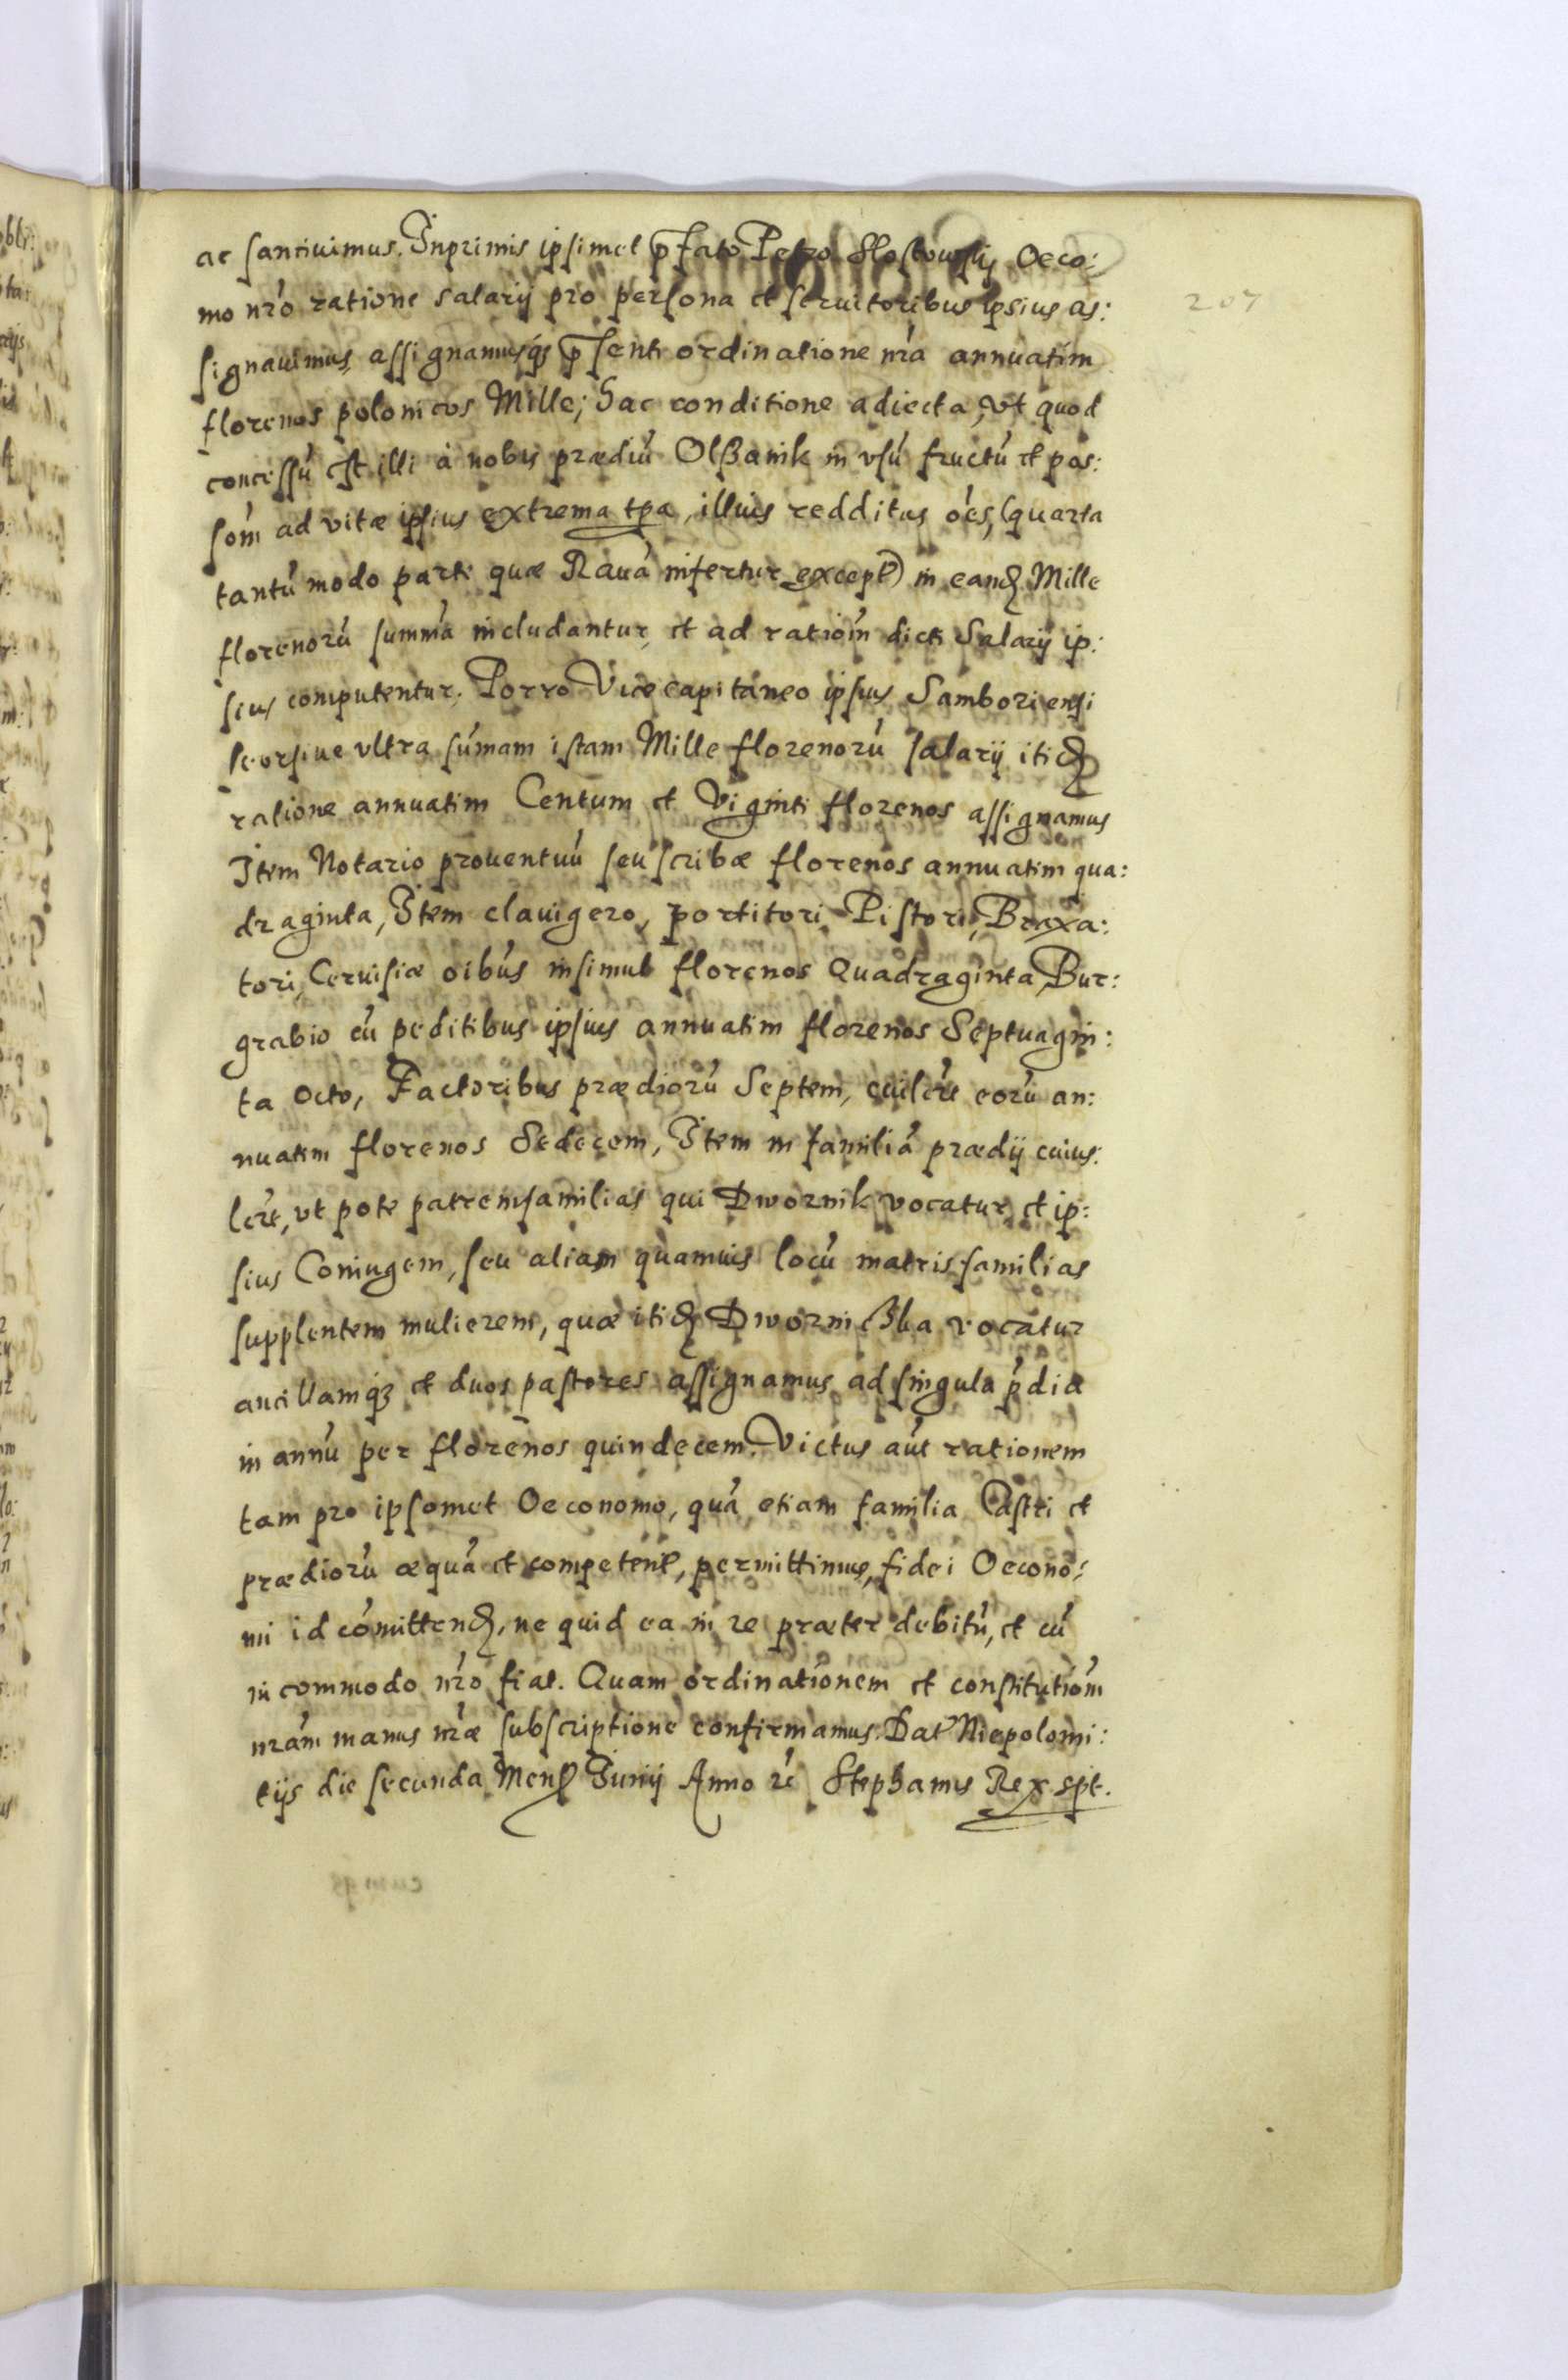 ac sanciuimus. Inprimis ipsimet p̄fato Petro Slostowsky Oeco:
mo nr̃o ratione salarij pro persona et seruitoribus ipsius as:
signauimus, assignamusq́; p̄senti ordinatione nr̃a annuatim
florenos polonicos Mille; hac conditione adiecta, vt quod
concessũ est illi à nobis prædiũ Olßanik in vsũ fructũ et pos:
som̃ ad vitæ ipsius extrema tpa, illius redditus oẽs, (quarta
tantũ modo parte quæ Rauã infertur except) in eand Mille
florenorũ summã includantur, et ad rationm̃ dicti Salarij ip:
sius computentur. Porro Vicecapitaneo ipsius Samboriensi
seorsiue vltra sũmam istam Mille florenorũ salarij itid
ratione annuatim Centum et Viginti florenos assignamus
Item Notario prouentuũ seu scribæ florenos annuatim qua:
draginta, Item clauigero, portitori, Pistori, Braxa:
tori, Ceruisiæ oĩbus insimul florenos Quadraginta, Bur:
grabio cũ peditibus ipsius annuatim florenos Septuagin:
ta Octo, Factoribus prædiorũ Septem, cuilẽt eorũ an:
nuatim florenos Sedecem, Item in familiã prædij cuius:
lẽt, vt pote patremfamilias qui Dwornik vocatur, et ip:
sius Coniugem, seu aliam quamuis locũ matrisfamilias
supplentem mulierem, quæ itid Dworniczka vocatur
ancillamq́; et duos pastores assignamus ad singula p̃dia
in annũ per florenos quindecem. Victus aũt rationem
tam pro ipsomet Oeconomo, quã etiam familia Castri et
prædiorũ æquã et competent, permittimus, fidei Oecono:
mi id cõmittend, ne quid ea in re præter debitũ, et cũ
incommodo nr̃o fiat. Quam ordinationem et constitutiom̃
nrãm manus nr̃æ subscriptione confirmamus. Dat Niepolomi:
tijs die secunda Mens Junij Anno rẽ Stephanus Rex spt.
207